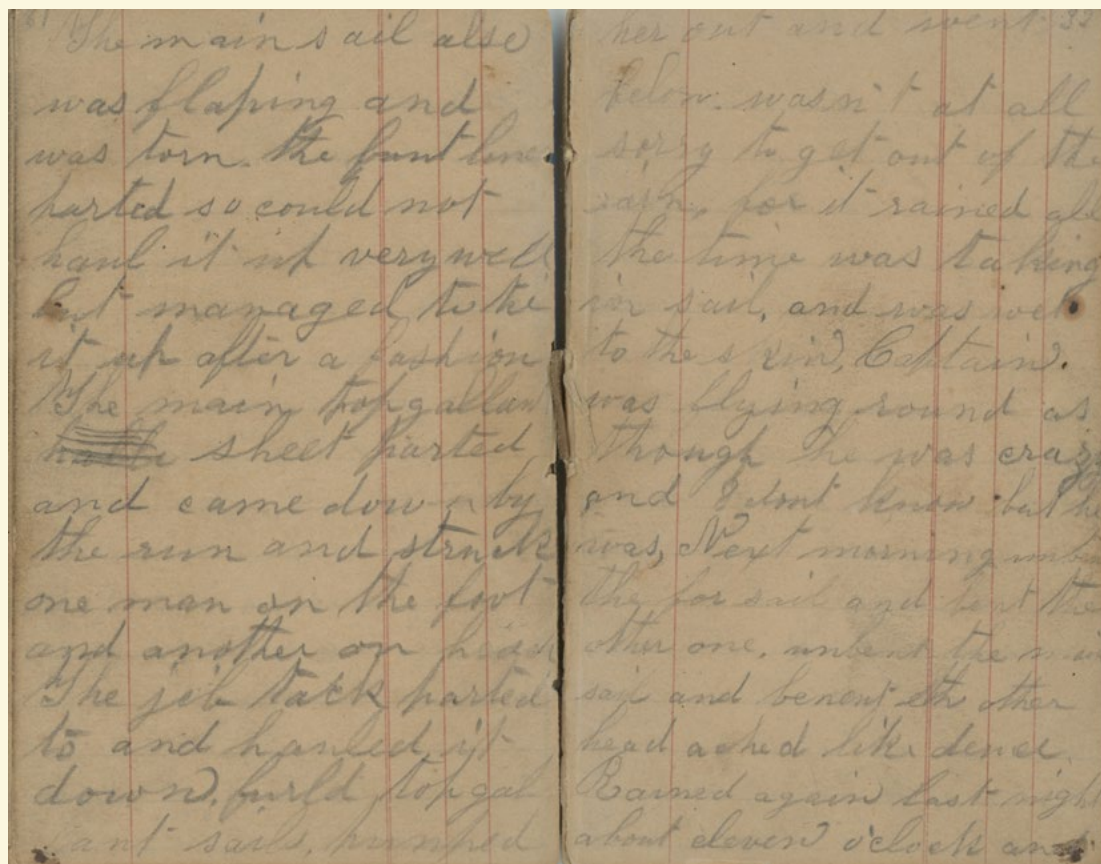 The main sail also
was flaping and
was torn. the bunt line
parted so could not
haul it up very well
but managed to tie
it up after a fashion
The main topgallant
sheet parted
and came down by
the run and struck
one man on the foot
and another on
The jib tack parted
to and hauled it
down, furld topgal
ant sails, pumped
her out and went
below. wasn't at all
sorry to get out of the
rain, for it rained all
the time was taking
in sail, and was wet
to the skin, Captain.
was flying round as
though he was crazy
and I dont know but he
was, Next morning unbent
the for sail and bent the
other one, unbent the main
sail and benent eth other
head ached like deuce.
Rained again last night
about eleven o'clock and